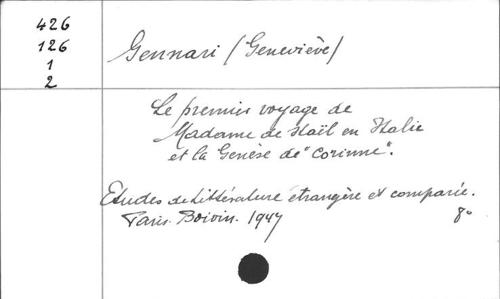 426
126
1
2
Gennari (Geneviève)
Le premier voyage de
Madame de Staël en Italie
et la Genèse de "Corinne".
Etudes de littérature étrangère et comparée.
Paris. Boivin. 1947 8°